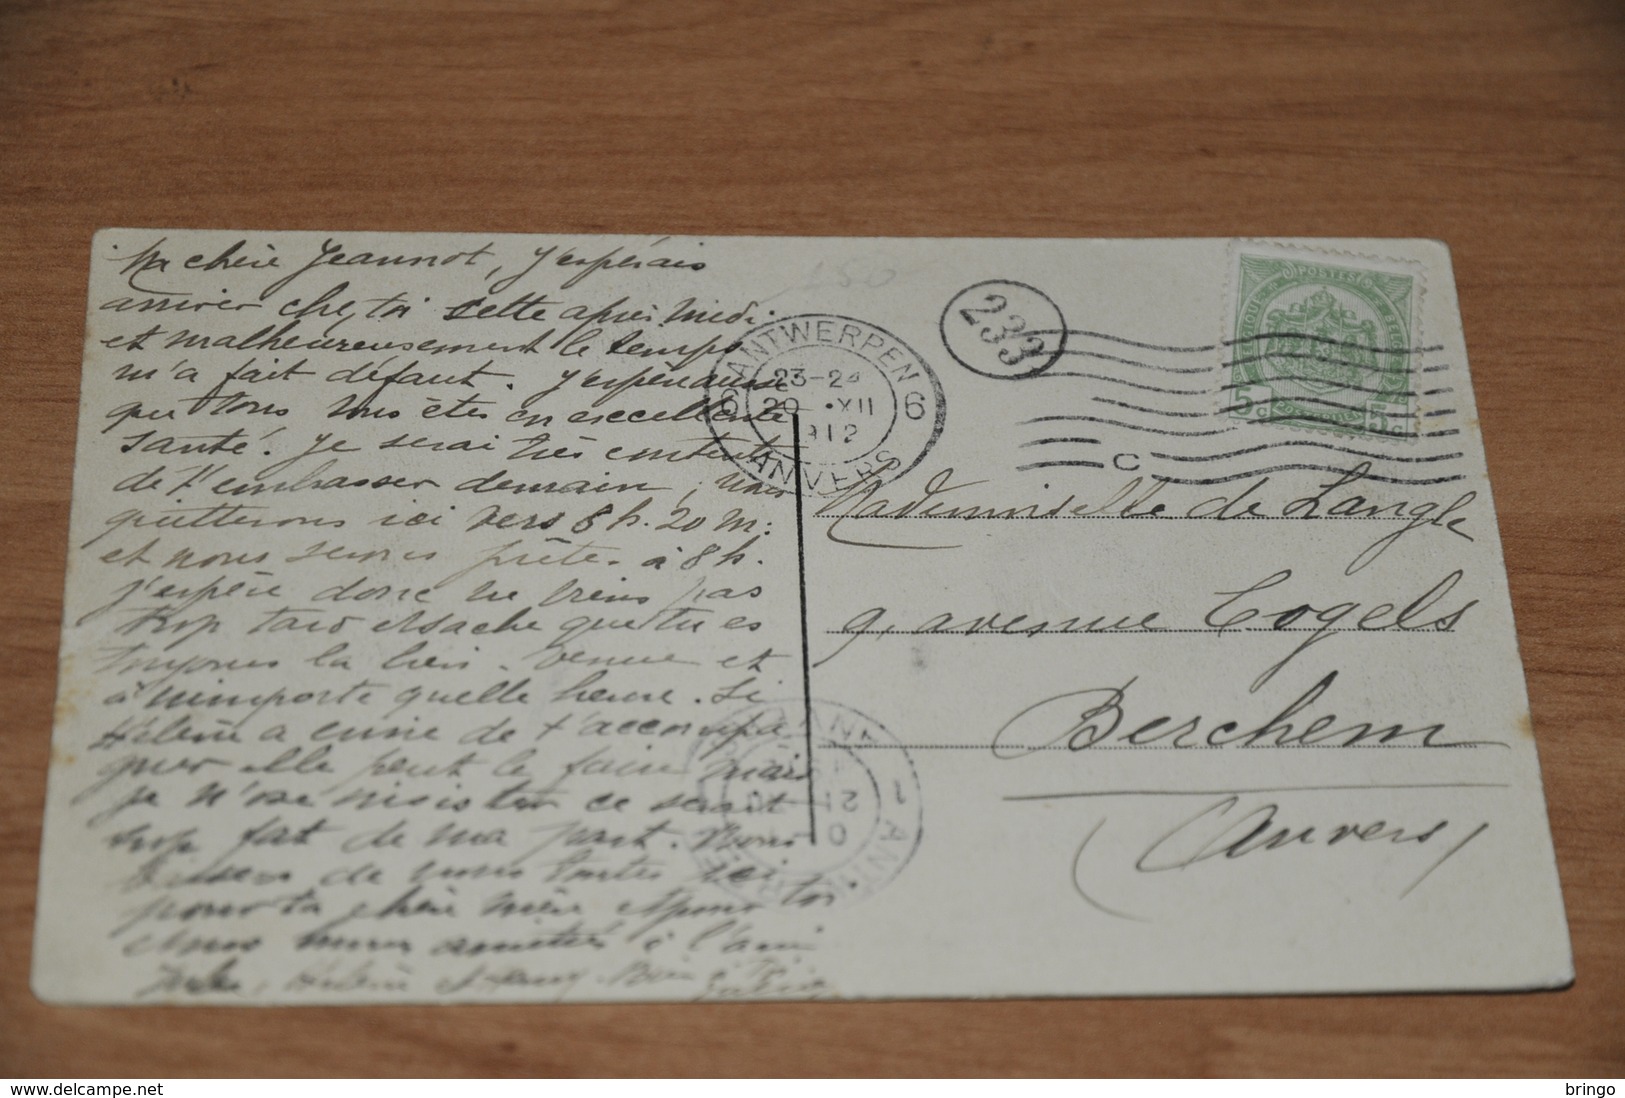 Ma chère Jeannot, J'espérais
arriver chez toi cette après midi
et malheureusement le temps
m'a fait défaut. J'espère aussi
que tous vous êtes en excellente
santé. Je serai très contente
de t'embrasser demain, nous
quitterons ici vers 8 h. 20 m.
et nous serons prête à 8 h.
j'espère donc ne viens pas
trop tard et sache que tu es
toujours la bien venue et
à n'importe quelle heure. Si
Hélène a envie de t'accompa
gner elle peut le faire mais
je n'ose insister ce serait
trop fat de ma part. Nous
de nous toutes ici
pour ta chère mère et pour toi
amitiés à l'ami
Hélène et
ANTWERPEN
6 23-24 6
20 XII
1912
ANVERS
233
C
POSTES
BELGIQUE
5c 5c
POSTERIJEN
Mademoiselle de Langle
9, avenue Cogels
Berchem
(Anvers)
ANT
21
bringo
www.delcampe.net